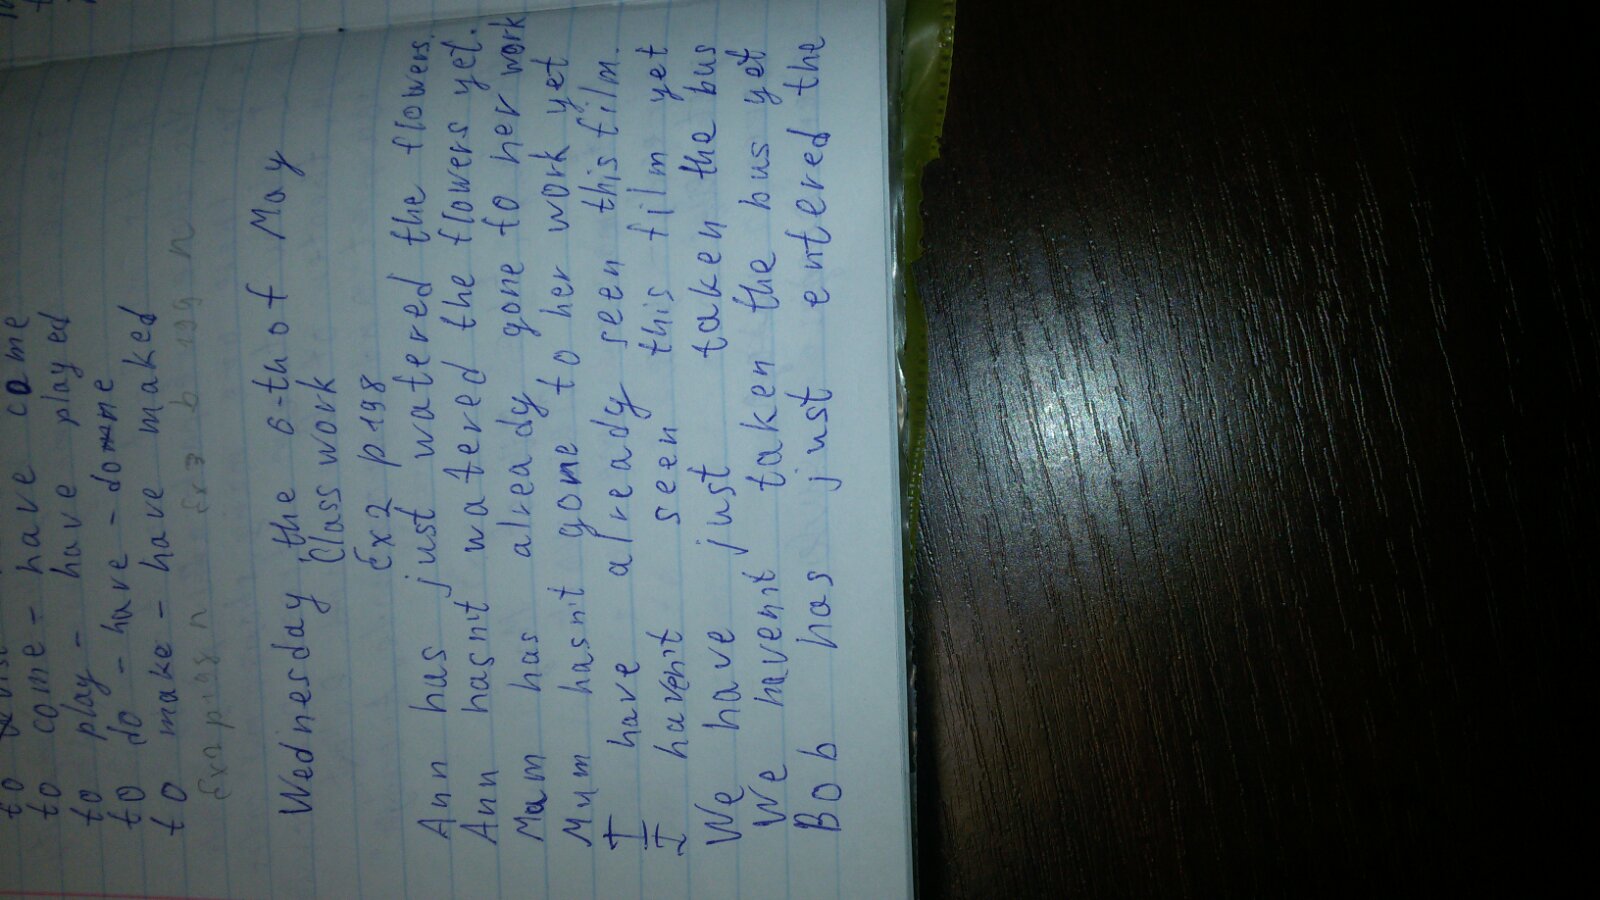 to come - have come
to play - have played
to do - have - done
to make - have maked
Ex2 p 198 n Ex3 b 199 n
Wednesday the 6-th of May
Class work
Ex2 p 198
Ann has just watered the flowers.
Ann hasn't watered the flowers yet.
Mam has already gone to her work
Mum hasn't gome to her work yet
I have already seen this film.
I haven't seen this film yet
We have just taken the bus
We haven't taken the bus yet
Bob has just entered the